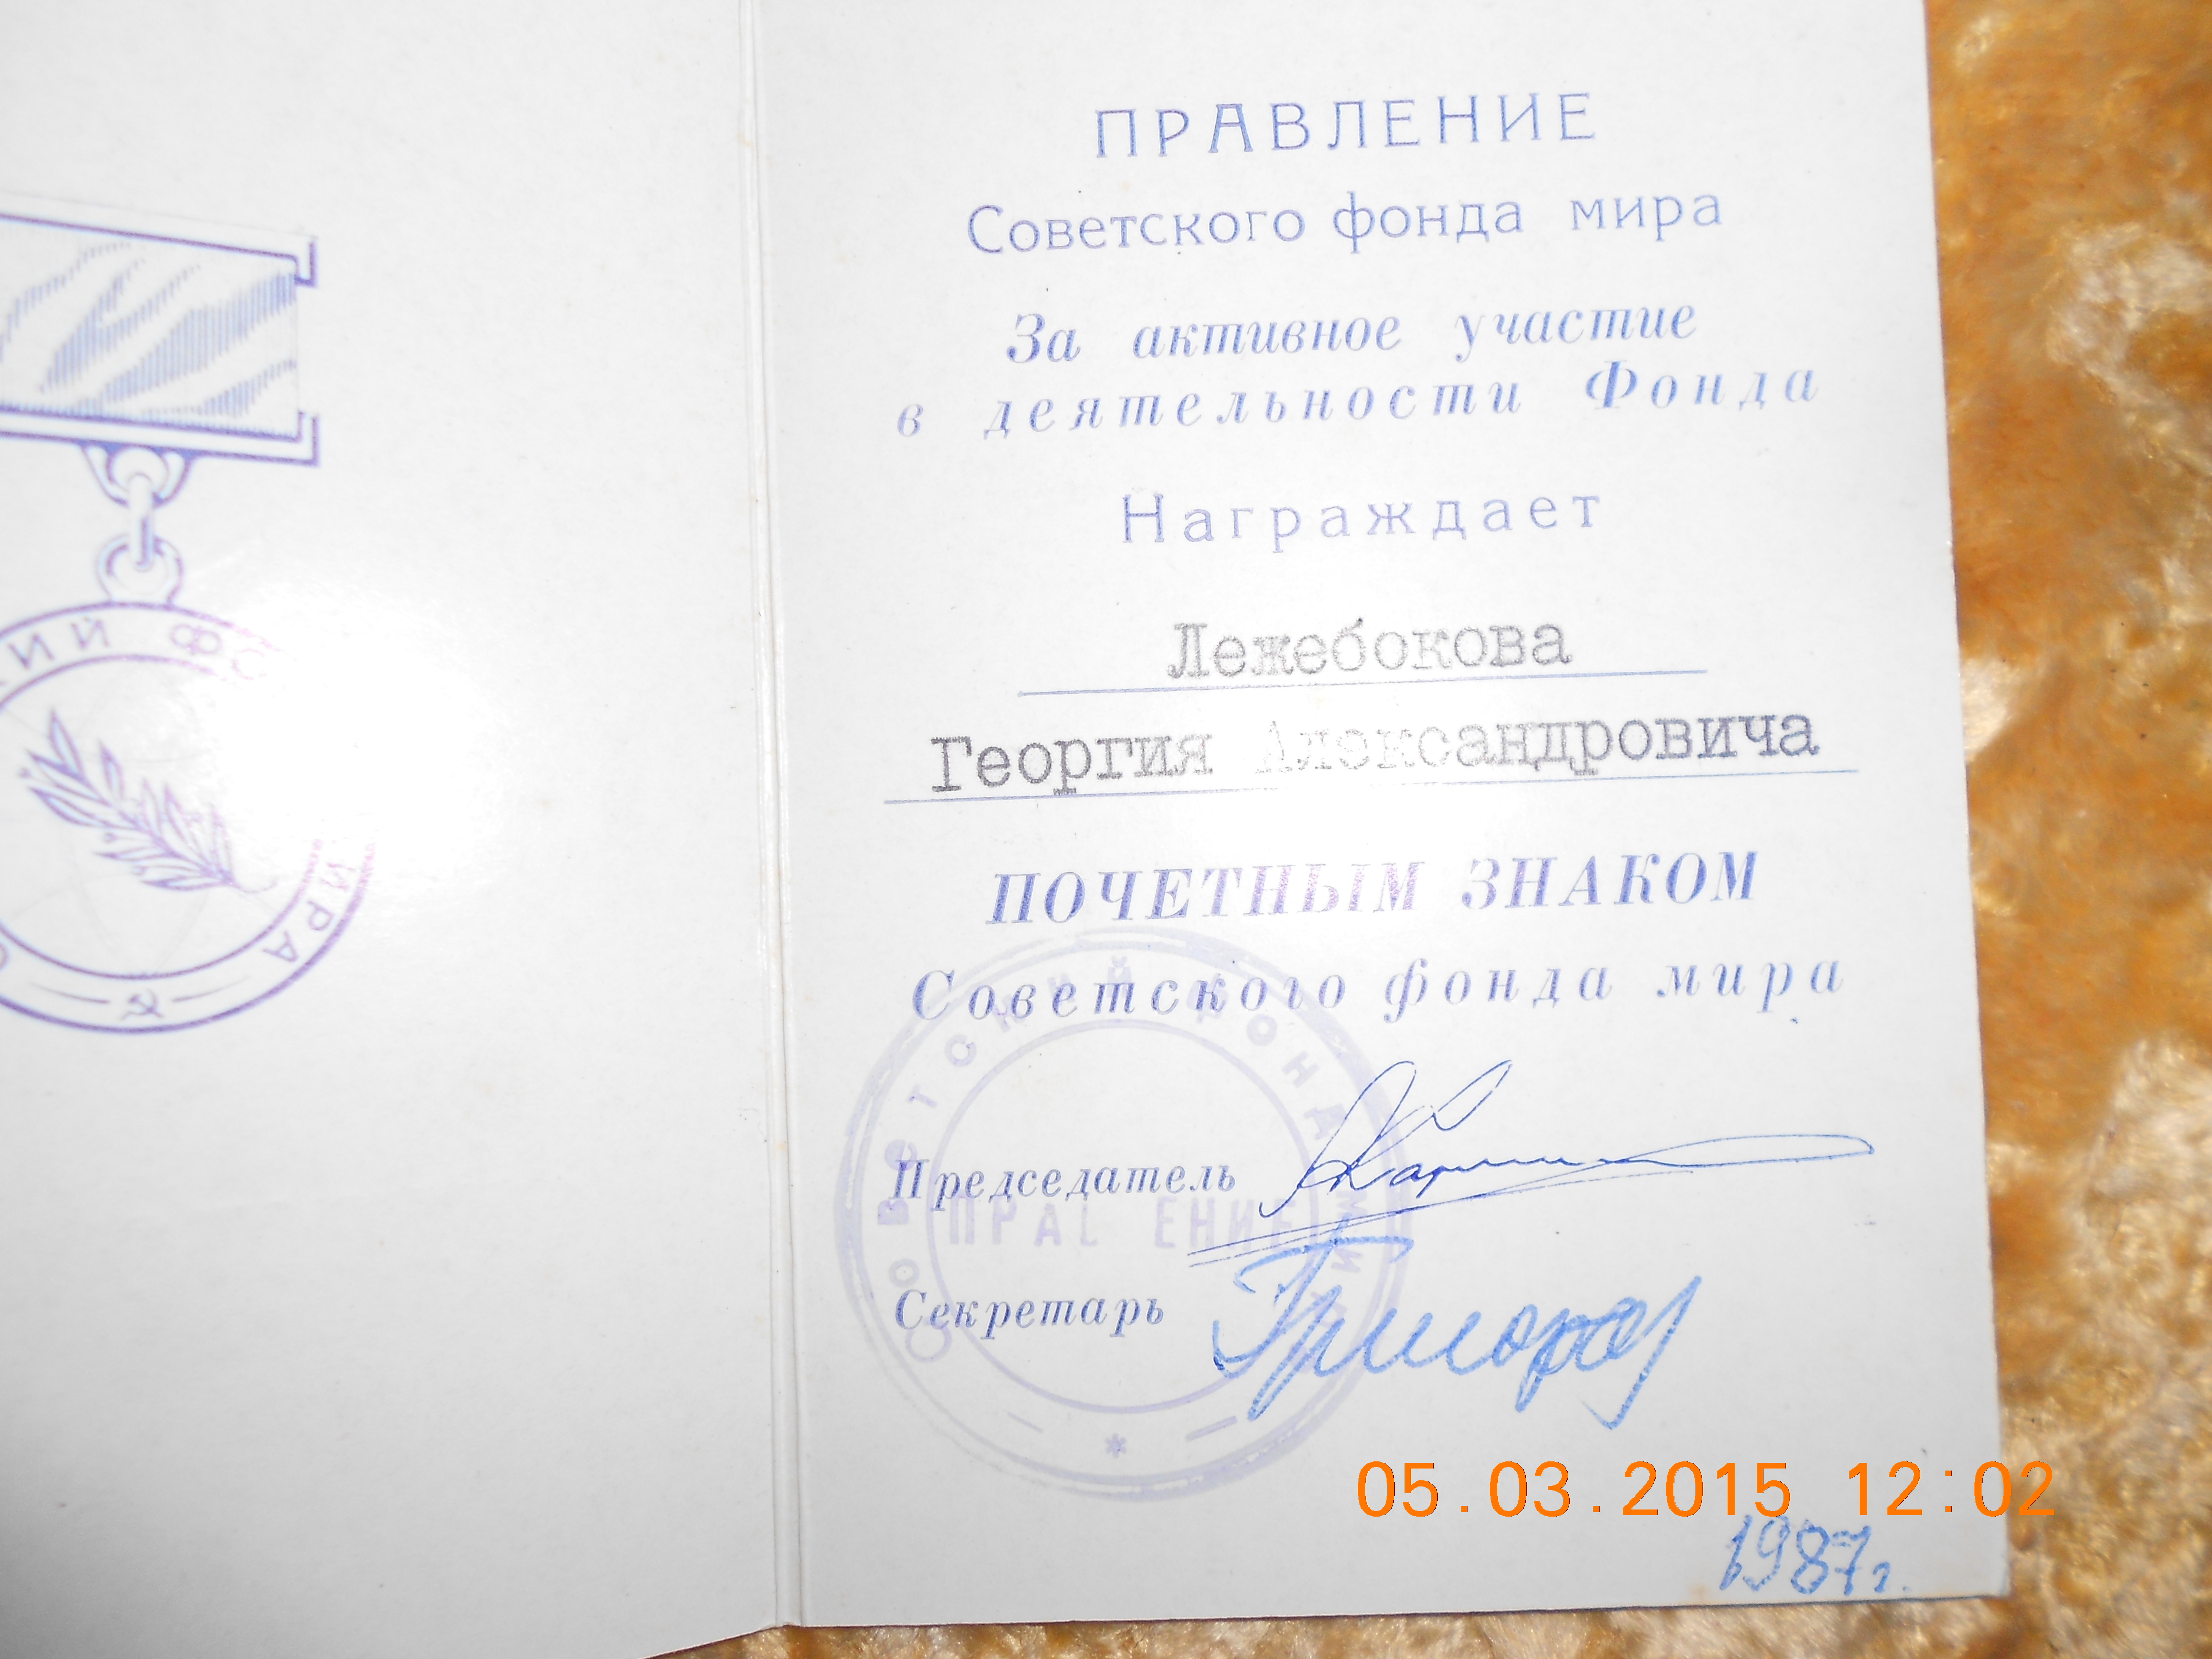 ПРАВЛЕНИЕ
Советского фонда мира
За активное участие
в деятельности Фонда
Награждает
Лежебокова
Георгия Александровича
ПОЧЕТНЫМ ЗНАКОМ
Советского фонда мира
СОВЕТСКИЙ ФОНД МИРА
Председатель
ПРАВ ЕНИЕ
Секретарь
05.03.2015 12:02
1987г.
КИЙ ФО
ИРА